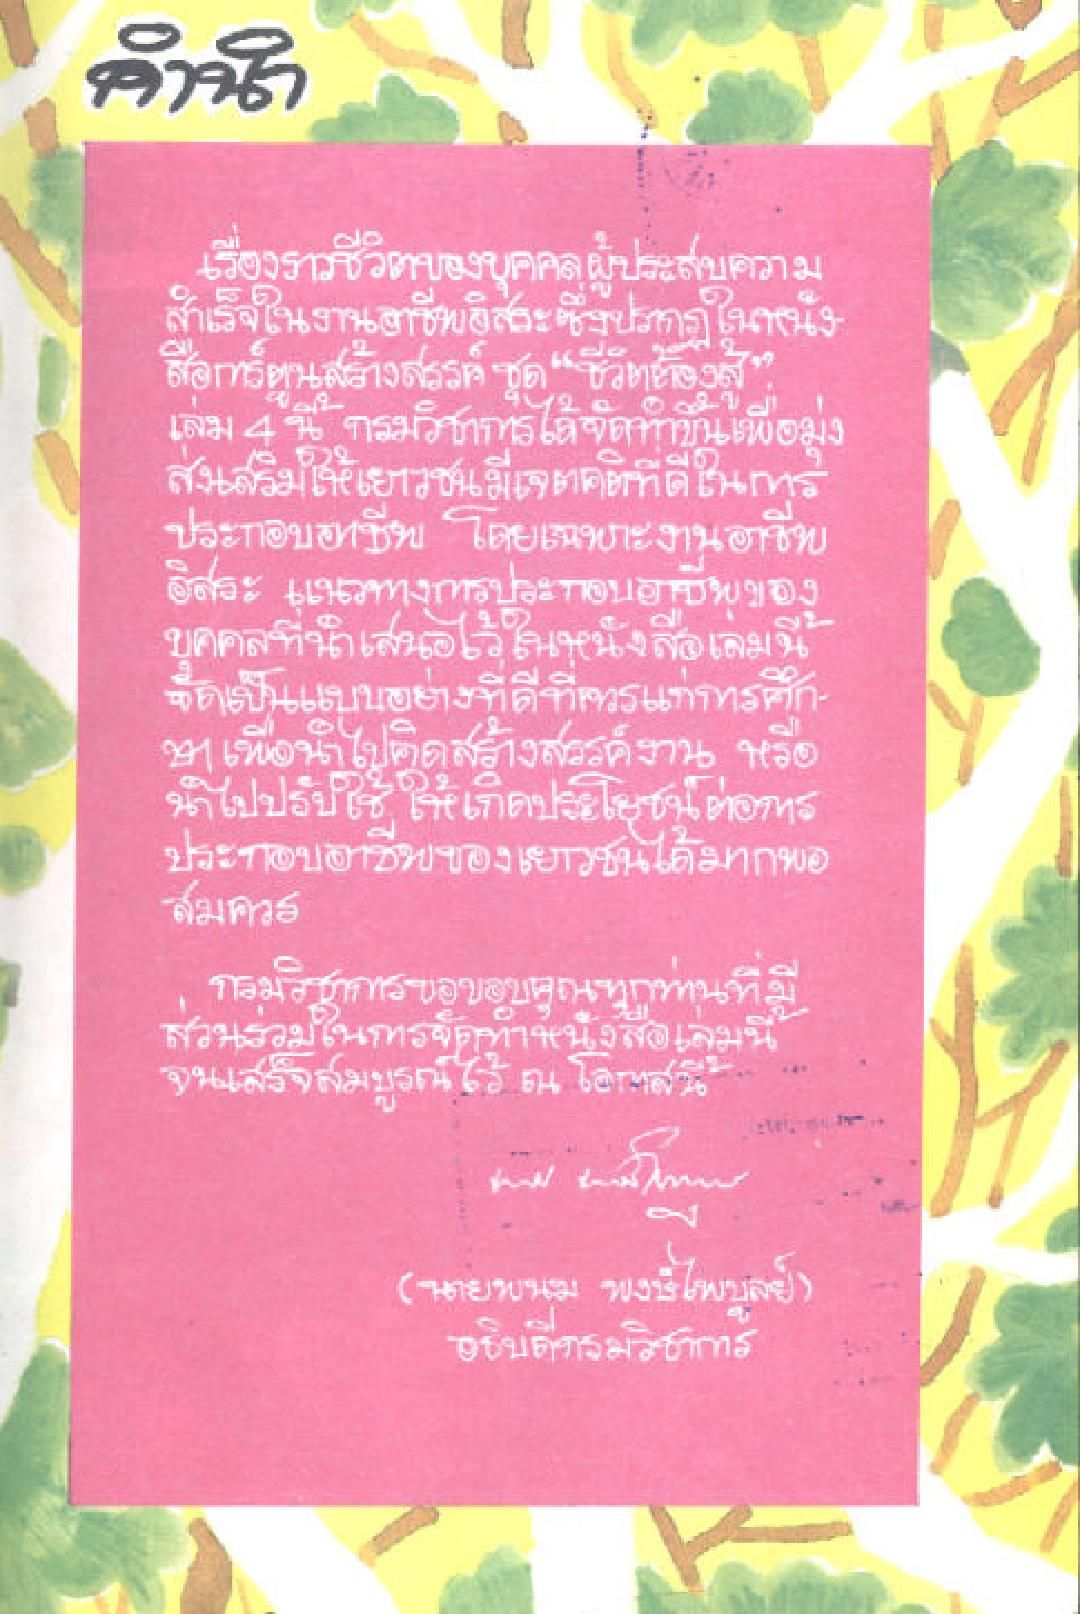 คำนำ
เรื่องราวชีวิตของบุคคลผู้ประสบความ
สำเร็จในงานอาชีพอิสระซึ่งปรากฏในหนัง-
สือการ์ตูนสร้างสรรค์ ชุด “ชีวิตต้องสู้”
เล่ม 4 นี้ กรมวิชาการได้จัดทำขึ้นเพื่อมุ่ง
ส่งเสริมให้เยาวชนมีเจตคติที่ดีในการ
ประกอบอาชีพ โดยเฉพาะงานอาชีพ
อิสระ แนวทางการประกอบอาชีพของ
บุคคลที่นำเสนอไว้ในหนังสือเล่มนี้
จัดเป็นแบบอย่างที่ดีที่ควรแก่การศึก-
ษา เพื่อนำไปคิดสร้างสรรค์งาน หรือ
นำไปปรับใช้ ให้เกิดประโยชน์ต่อการ
ประกอบอาชีพของเยาวชนได้มากพอ
สมควร
กรมวิชาการขอขอบคุณทุกท่านที่มี
ส่วนร่วมในการจัดทำหนังสือเล่มนี้
จนเสร็จสมบูรณ์ไว้ ณ โอกาสนี้
(นายพนม พงษ์ไพบูลย์)
อธิบดีกรมวิชาการ